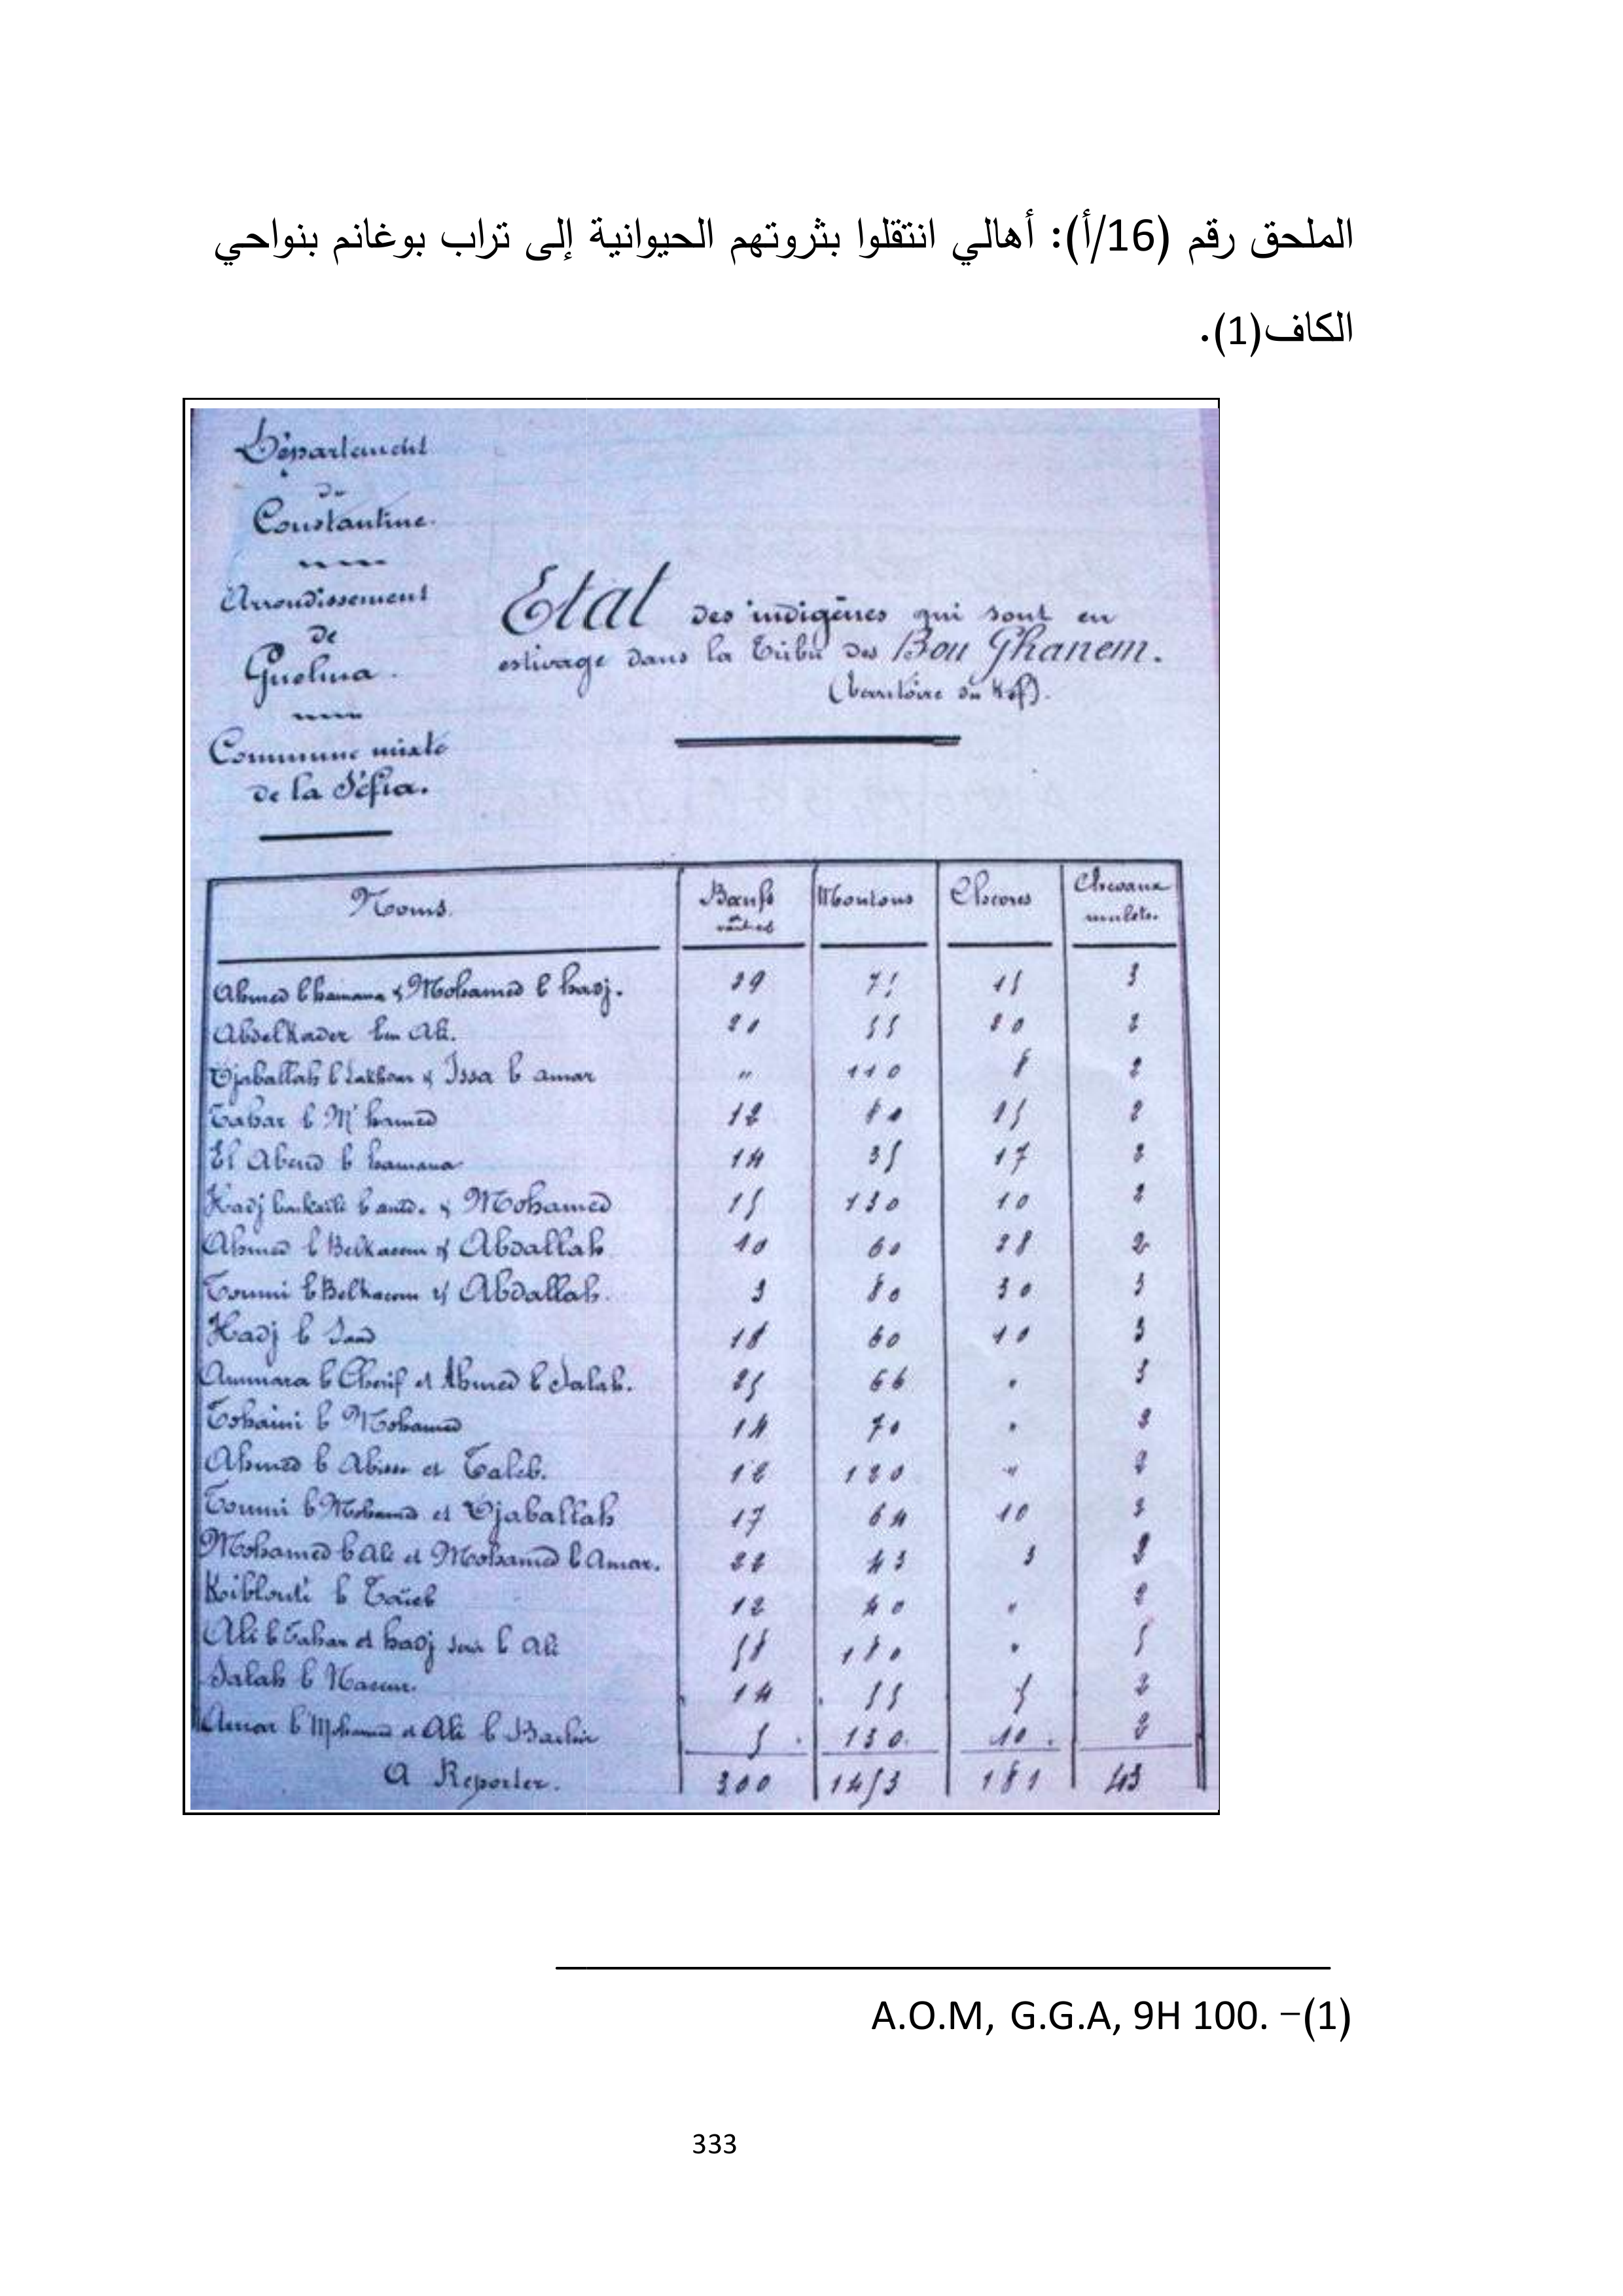 الملحق رقم (16/أ): أهالي انتقلوا بثروتهم الحيوانية إلى تراب بوغانم بنواحي
الكاف(1).
Département
de
Constantine.
Arrondissement
de
Guelma.
Commune mixte
de la Séfia.
Etat des indigènes qui sont en
estivage dans la tribu des Bou Ghanem.
(territoire du Kef).
Noms. Bœufs Moutons Chèvres Chevaux mulets.
Ahmed b hamana & Mohamed b hadj. 29 71 15 3
Abdelkader ben Ali. 20 55 20 2
Djaballah b Lakhdar & Issa b amar " 110 8 2
Tahar b M'hamed 12 80 15 2
El Abend b hamana 14 35 17 2
Hadj b & Mohamed 15 130 10 2
Ahmed b Belkacem & Abdallah 10 60 28 2
Toumi b Belkacem & Abdallah. 3 80 30 3
Hadj b Saad 18 60 10 3
Ammara b Cherif et Ahmed b Salah. 25 66 " 3
Tohami b Mohamed 14 70 " 3
Ahmed b et Taleb. 12 120 " 2
Toumi b Mohamed et Djaballah 17 64 10
Mohamed b Ali et Mohamed b Amar. 22 43 3 2
Keblouti b Taïeb 12 40 " 2
Ali b Tahar et hadj b Ali 58 180 " 5
Salah b Naceur. 14 55 5 2
Amar b Mohamed et Ali b Bachir 5 130 10 2
A Reporter. 300 1453 181 43
(1)– A.O.M, G.G.A, 9H 100.
333